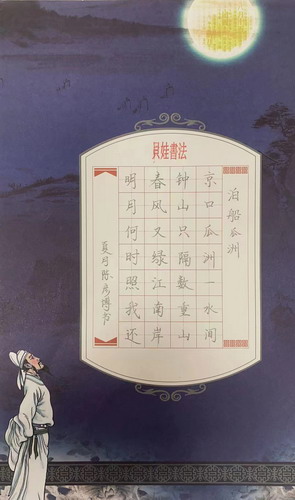 貝娃書法
泊船瓜洲
京口瓜洲一水间
钟山只隔数重山
春风又绿江南岸
明月何时照我还